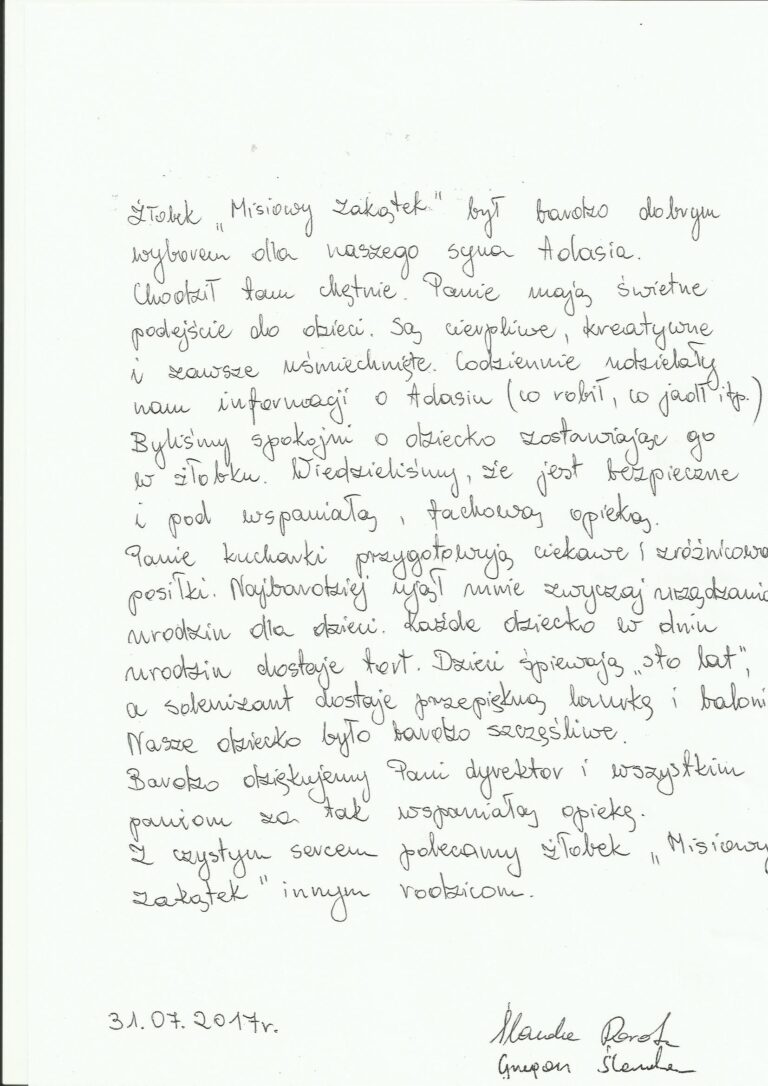 Żłobek „Misiowy Zakątek" był bardzo dobrym
wyborem dla naszego syna Adasia.
Chodził tam chętnie. Panie mają świetne
podejście do dzieci. Są cierpliwe, kreatywne
i zawsze uśmiechnięte. Codziennie udzielały
nam informacji o Adasiu (co robił, co jadł itp.)
Byliśmy spokojni o dziecko zostawiając go
w żłobku. Wiedzieliśmy, że jest bezpieczne
i pod wspaniałą, fachową opieką.
Panie kucharki przygotowują ciekawe i zróżnicowa
posiłki. Najbardziej ujął mnie zwyczaj urządzania
urodzin dla dzieci. Każde dziecko w dniu
urodzin dostaje tort. Dzieci śpiewają „sto lat",
a solenizant dostaje przepiękną laurkę i baloni
Nasze dziecko było bardzo szczęśliwe.
Bardzo dziękujemy Pani dyrektor i wszystkim
paniom za tak wspaniałą opiekę.
Z czystym sercem polecamy żłobek „Misiowy
Zakątek" innym rodzicom.
31.07.2017r.